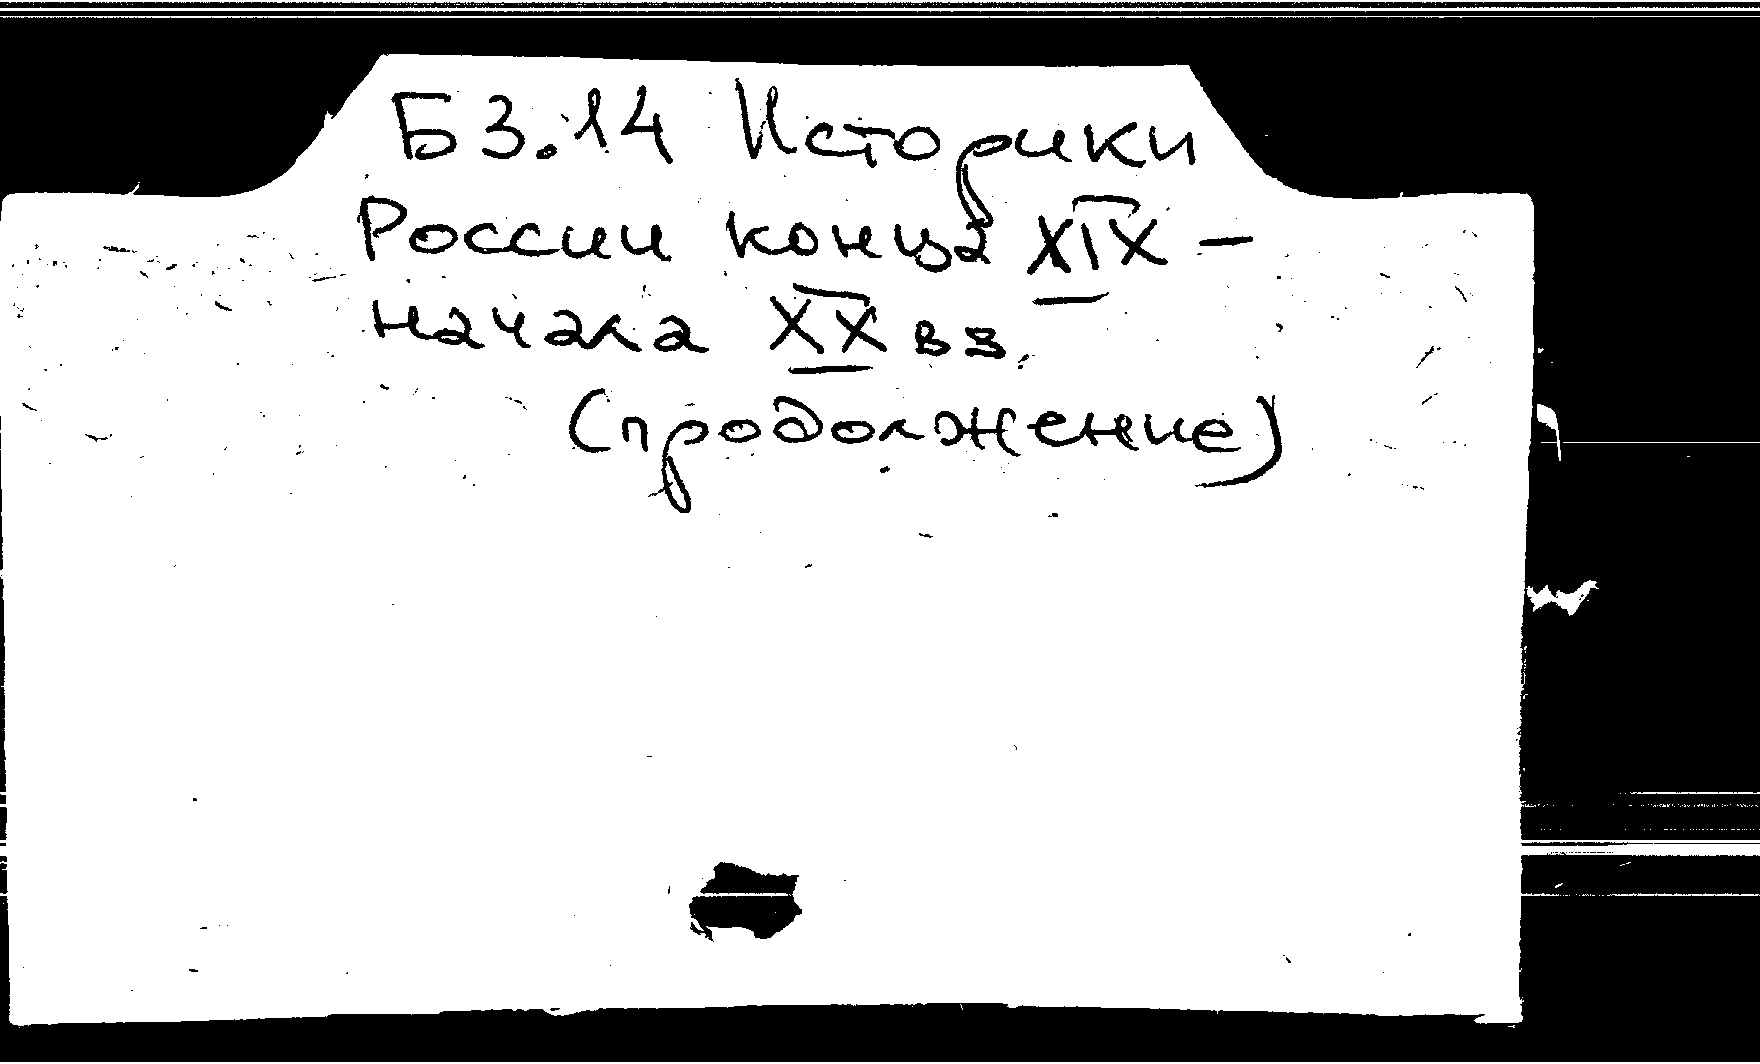 Б3.14 Историки
России конца XIX –
начала XX вв.
(продолжение)